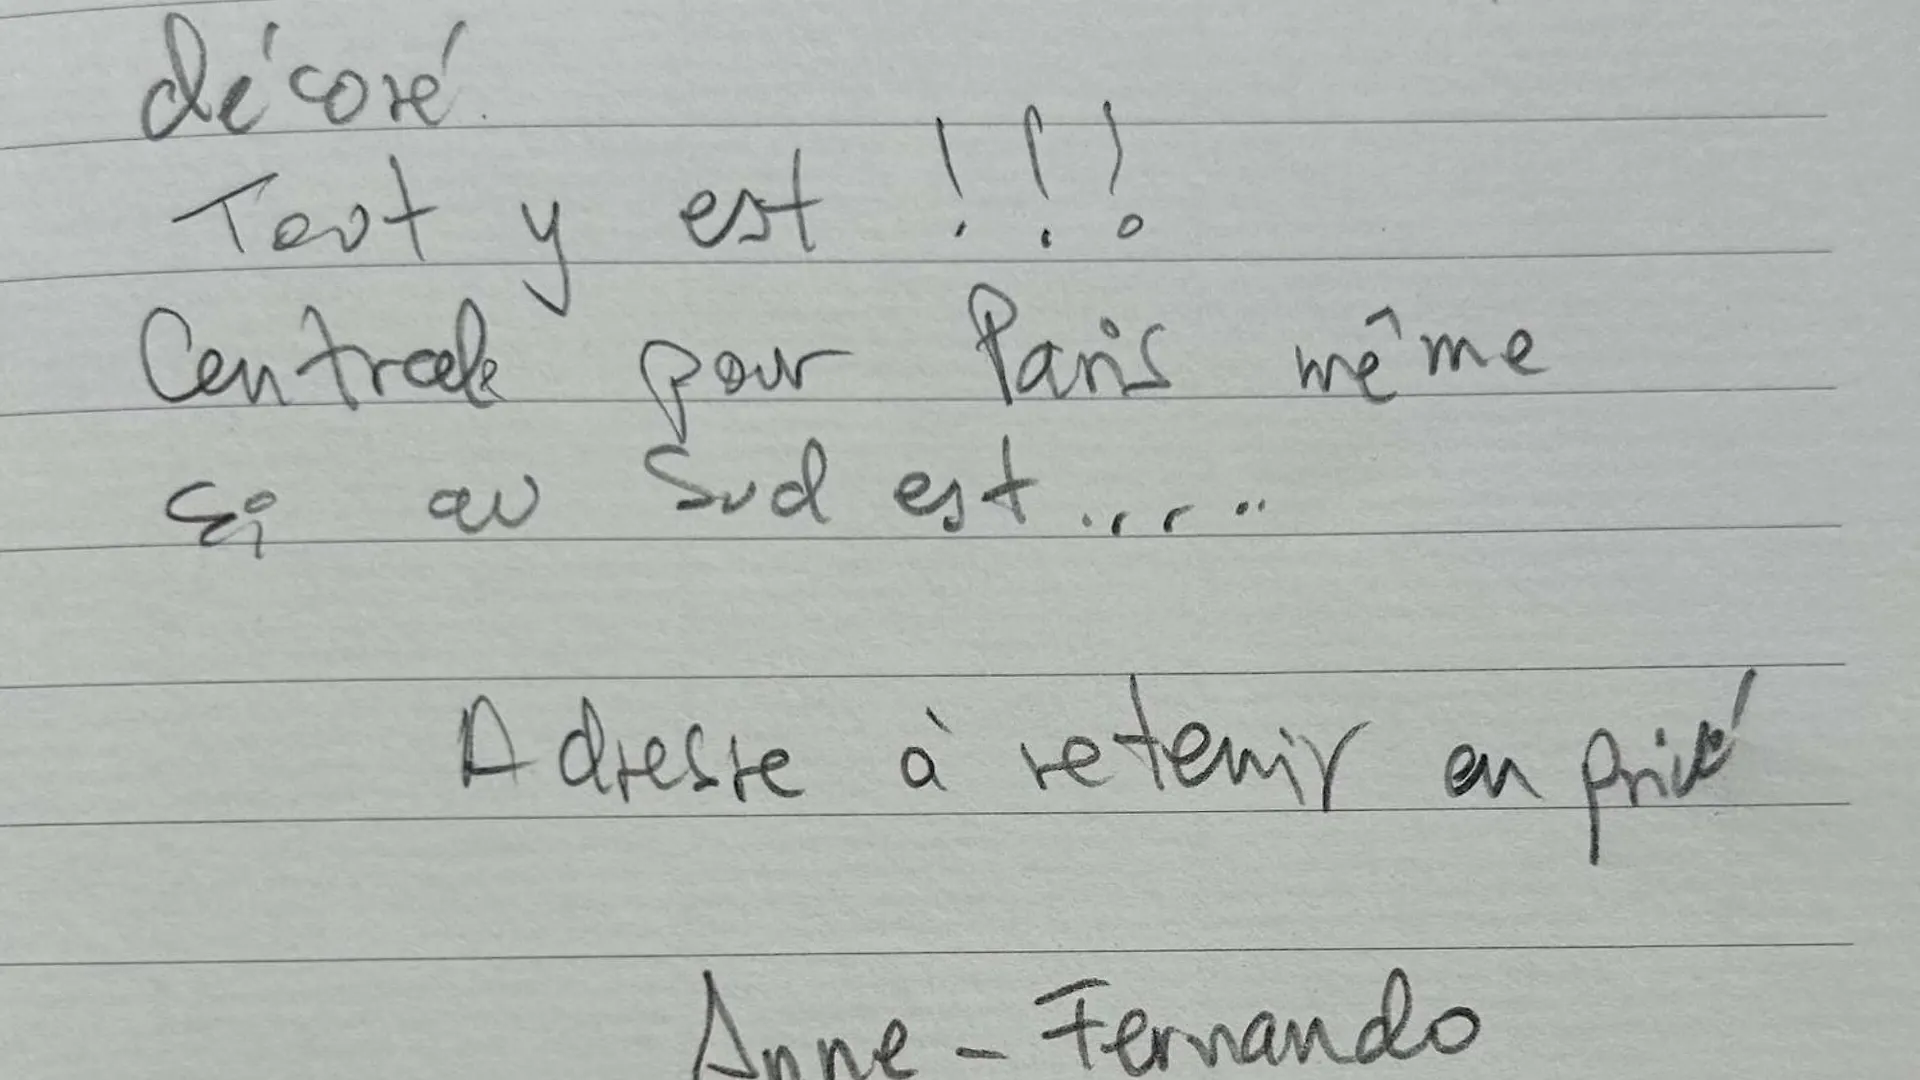 décoré.
Tout y est !!!
Centrale pour Paris même
si au Sud est......
Adresse à retenir en privé
Anne - Fernando